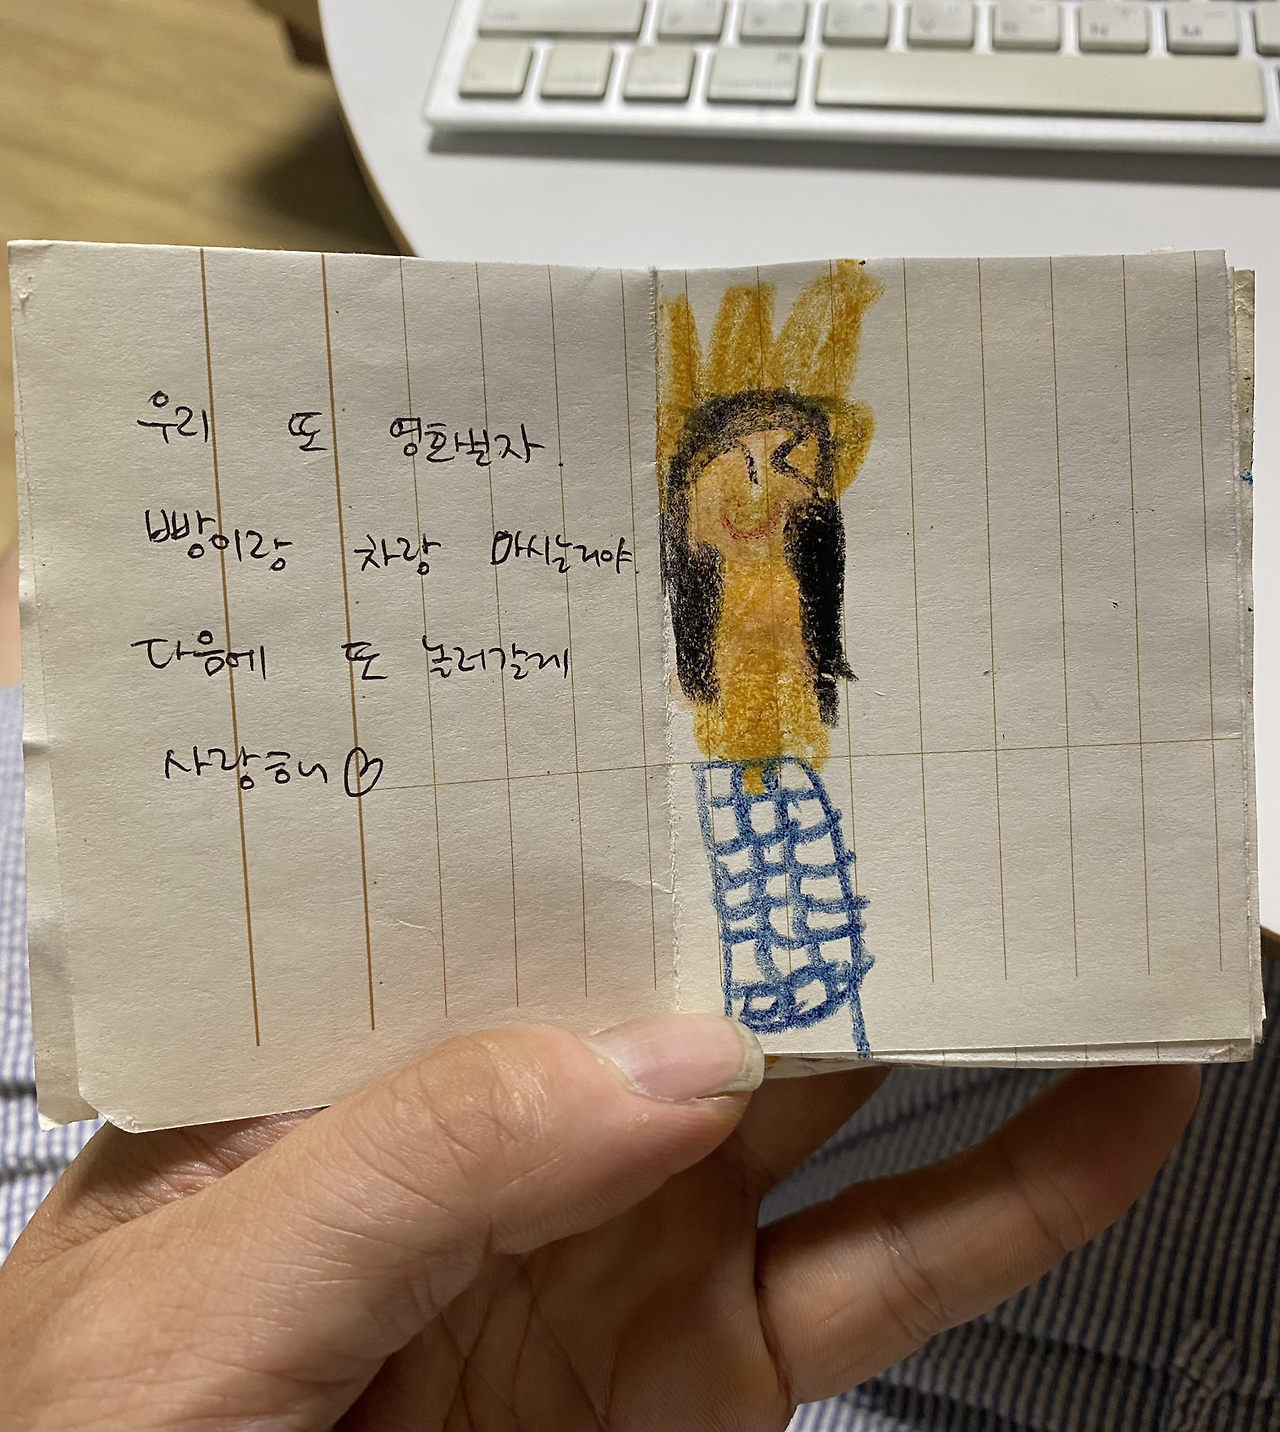 우리 또 영화보자.
빵이랑 차랑
다음에 또 놀러갈게
사랑해♡